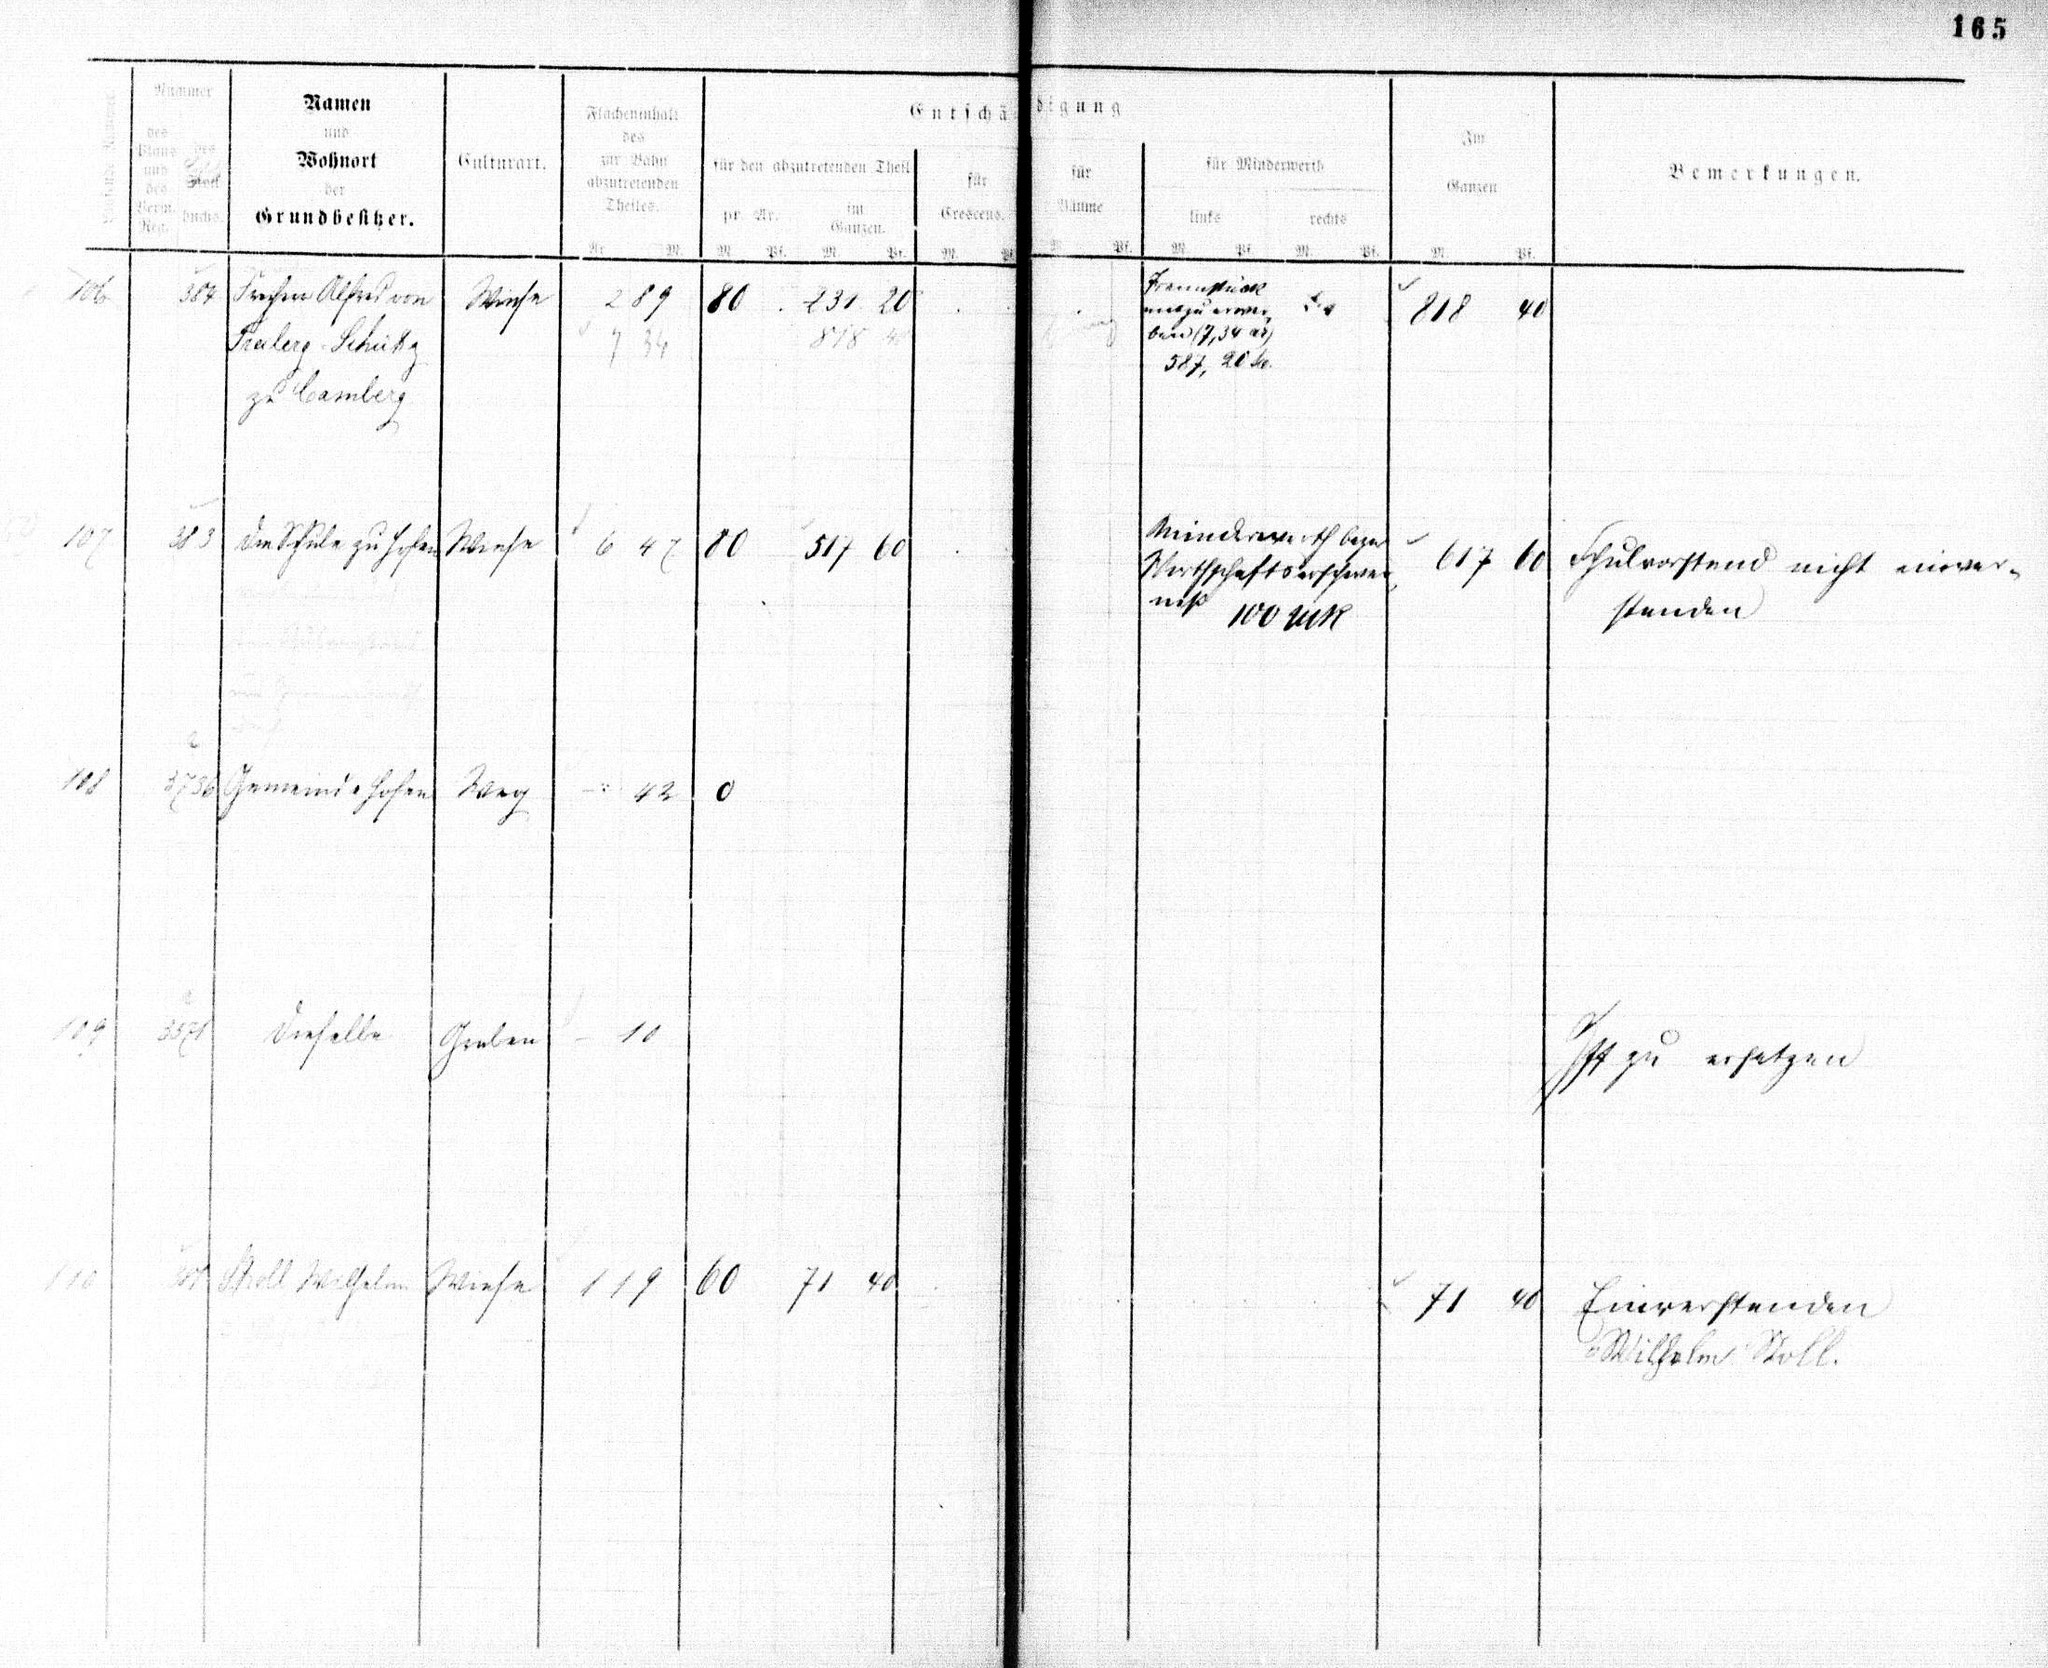 165
Nummer
des Plans und des Verm. Reg.
des Stockbuchs.
Namen
und
Wohnort
der
Grundbesitzer.
Culturart.
Flächeninhalt
des
zur Bahn
abzutretenden
Theiles.
Ar. M.
Entschädigung
für den abzutretenden Theil
pr. Ar.
im Ganzen.
M. Pf. M. Pf.
für Crescens.
M. Pf.
für Bäume
M. Pf.
für Minderwerth
links rechts
M. Pf. M. Pf.
Im
Ganzen
M. Pf.
Bemerkungen.
106 384 Freiherr Alfred von Wiese 2 89 80 231 20 Trennstück 818 40
7 34 818 40 mitzuerwer-
Schütz ben (7,34 ar)
zu Camberg 587, 20
107 383 Die Schule zu Hofen Wiese 6 47 80 517 60 Minderwerth bezw 617 60 Schulvorstand nicht einver-
Wirthschaftserschwer- standen
niß 100 Mk
108 3736 Gemeinde Hofen Weg - 42 0
109 3571 Dieselbe Graben - 10 Ist zu ersetzen
110 Stoll Wilhelm Wiese 1 19 60 71 40 71 40 Einverstanden
Wilhelm Stoll.